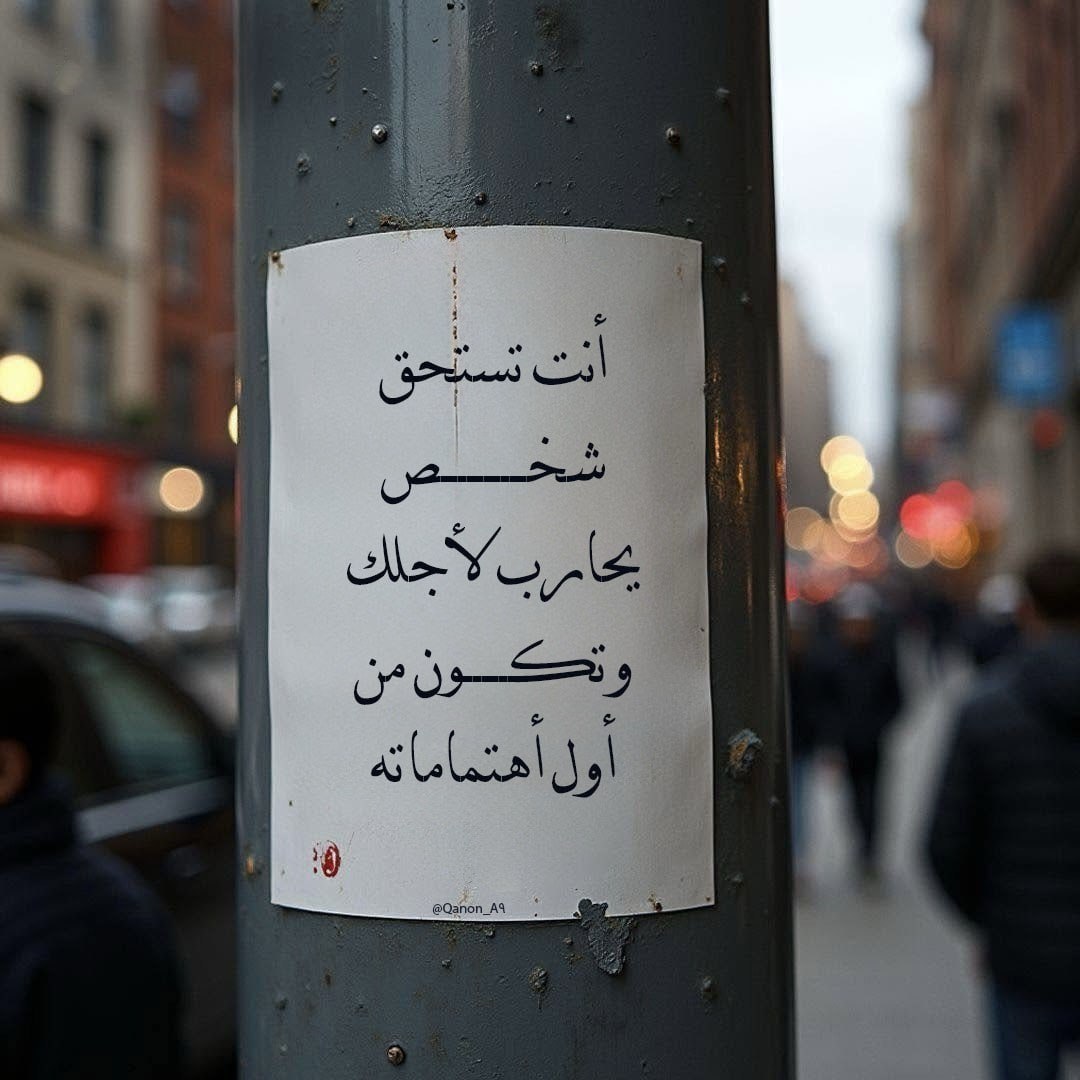 أنت تستحق
شخــــص
يحارب لأجلك
وتكــــون من
أول أهتماماته
@Qanon_A٩